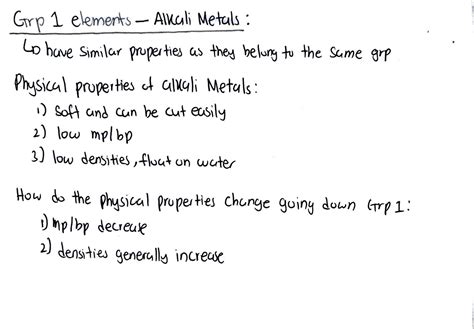 Grp 1 elements — Alkali Metals :
↳ have similar properties as they belong to the same grp
Physical properties of alkali Metals :
1) soft and can be cut easily
2) low mp/bp
3) low densities, float on water
How do the physical properties change going down Grp 1 :
1) mp/bp decrease
2) densities generally increase